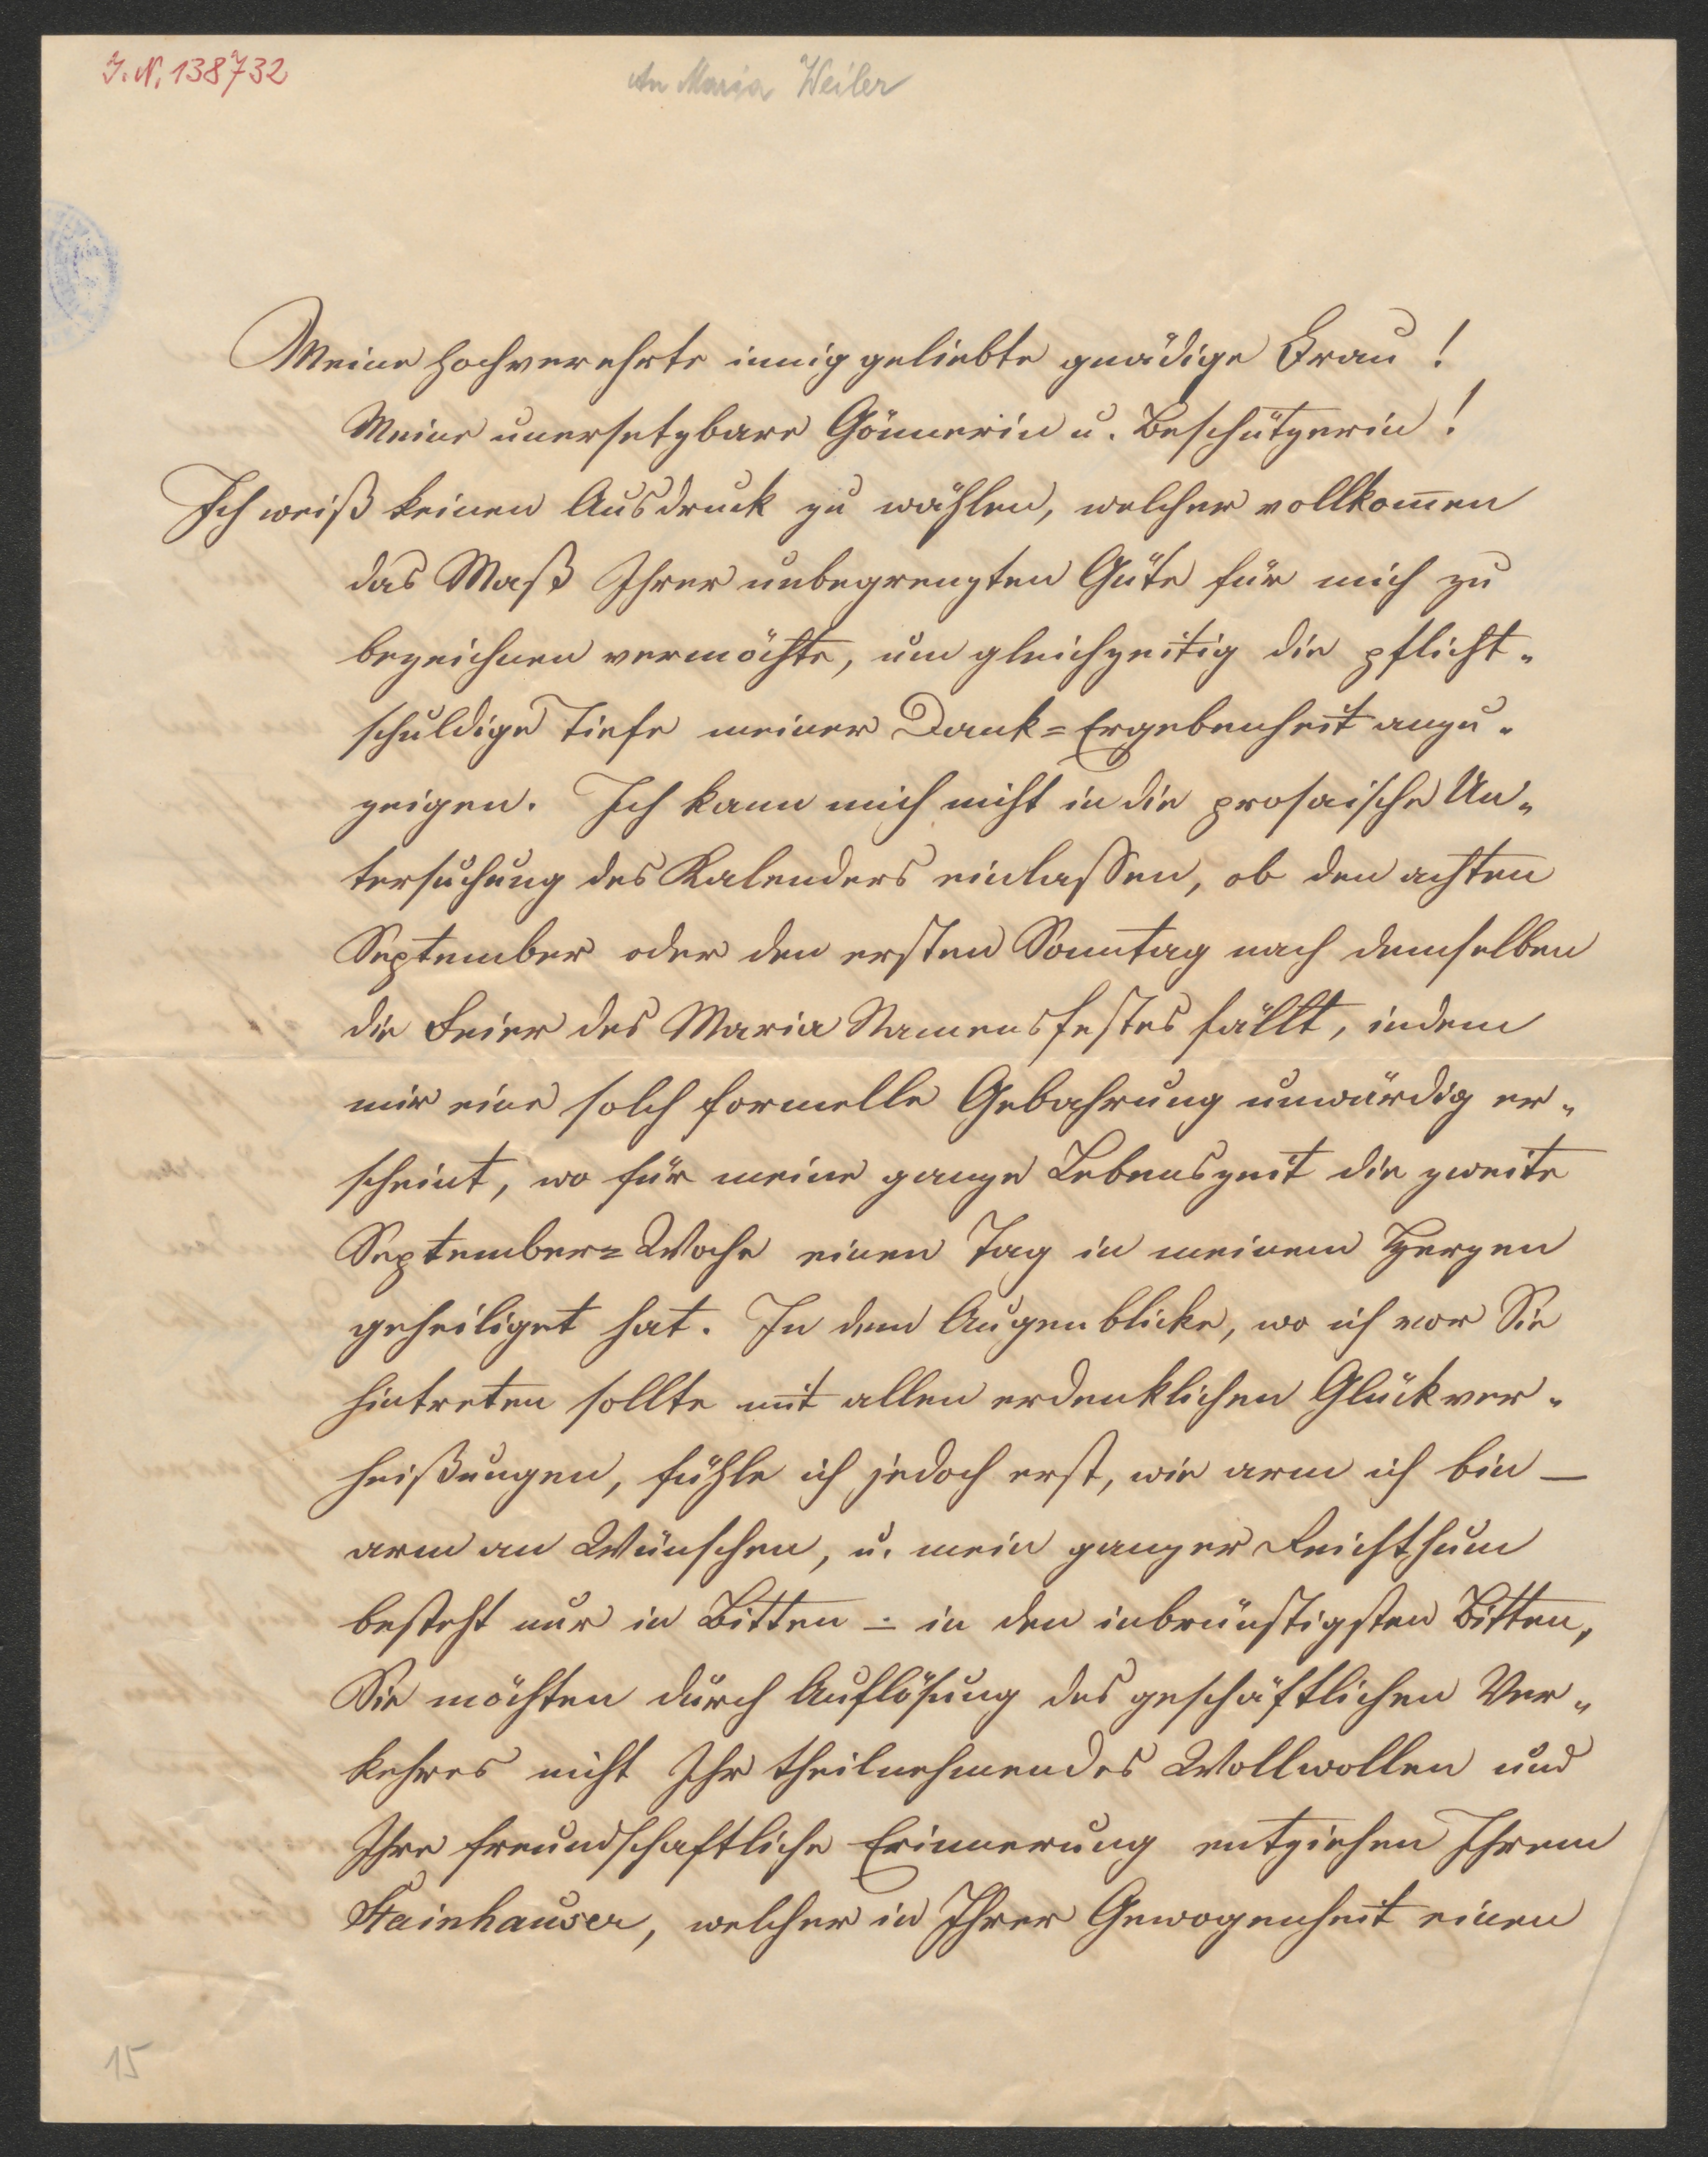 J. N. 138732
An Maria Weiler
Meine hochverehrte innig geliebte gnädige Frau!
Meine unersetzbare Gönnerin u. Beschützerin!
Ich weiß keinen Ausdruck zu wählen, welcher vollkom̅en
das Maß Ihrer unbegrenzten Güte für mich zu
bezeichnen vermöchte, um gleichzeitig die pflicht-
schuldige Tiefe meiner Dank=Ergebenheit anzu-
zeigen. Ich kann mich nicht in die prosaische Un-
tersuchung des Kalenders einlassen, ob den achten
September oder den ersten Sonntag nach demselben
die Feier des Maria Namensfestes fällt, indem
mir eine solch formelle Gebahrung unwürdig er-
scheint, wo für meine ganze Lebenszeit die zweite
September=Woche einen Tag in meinem Herzen
geheiliget hat. In dem Augenblicke, wo ich vor Sie
hintreten sollte mit allen erdenklichen Glückver-
heißungen, fühle ich jedoch erst, wie arm ich bin —
arm an Wünschen, u. mein ganzer Reichthum
besteht nur in Bitten – in den inbrünstigsten Bitten,
Sie möchten durch Auflösung des geschäftlichen Ver-
kehres nicht Ihr theilnehmendes Wollwollen und
Ihre freundschaftliche Erinnerung entziehen Ihrem
Stainhauser, welcher in Ihrer Gewogenheit einen
15